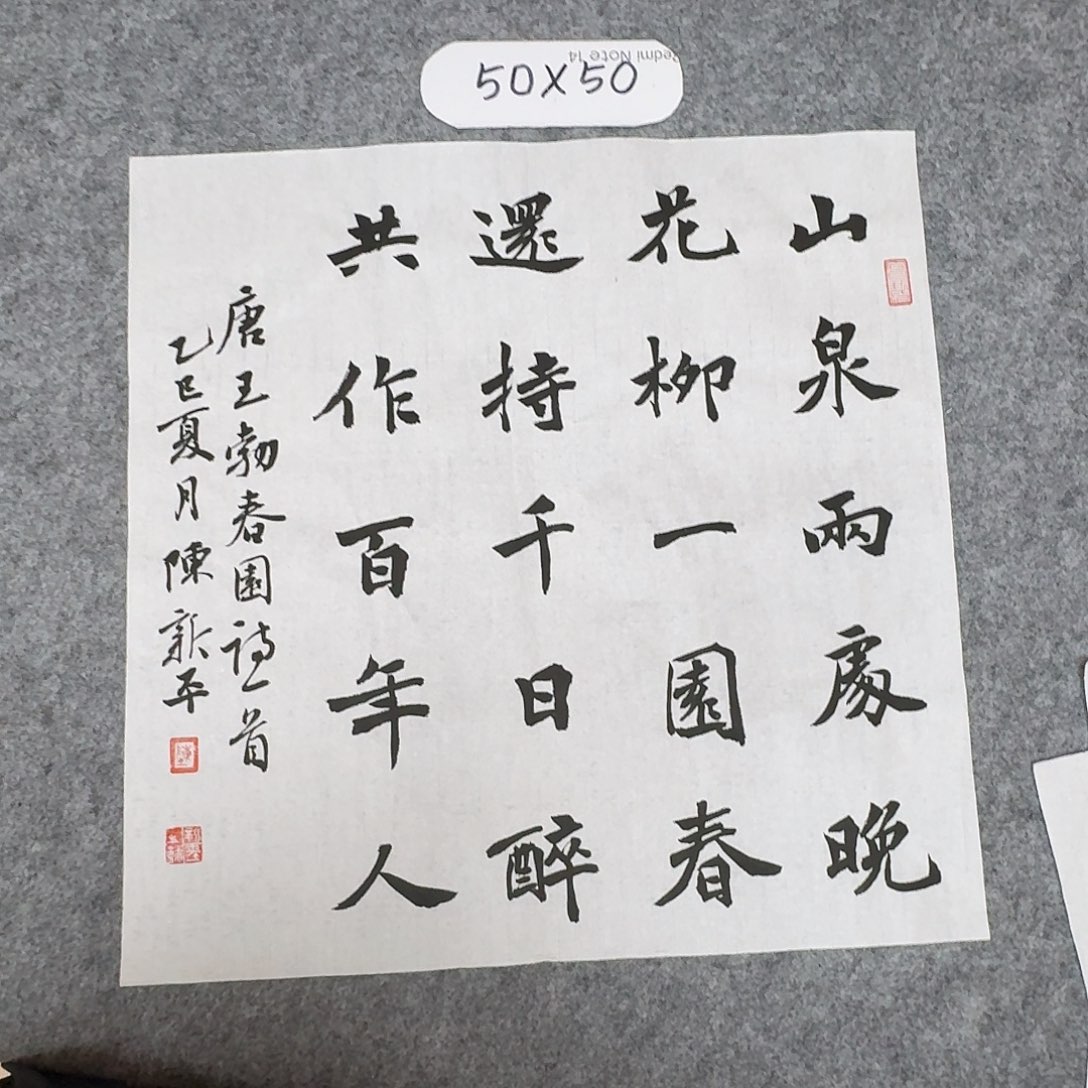 Redmi Note 14
50X50
山泉兩處晚
花柳一園春
還持千日醉
共作百年人
唐王勃春園詩一首
乙巳夏月陳新平